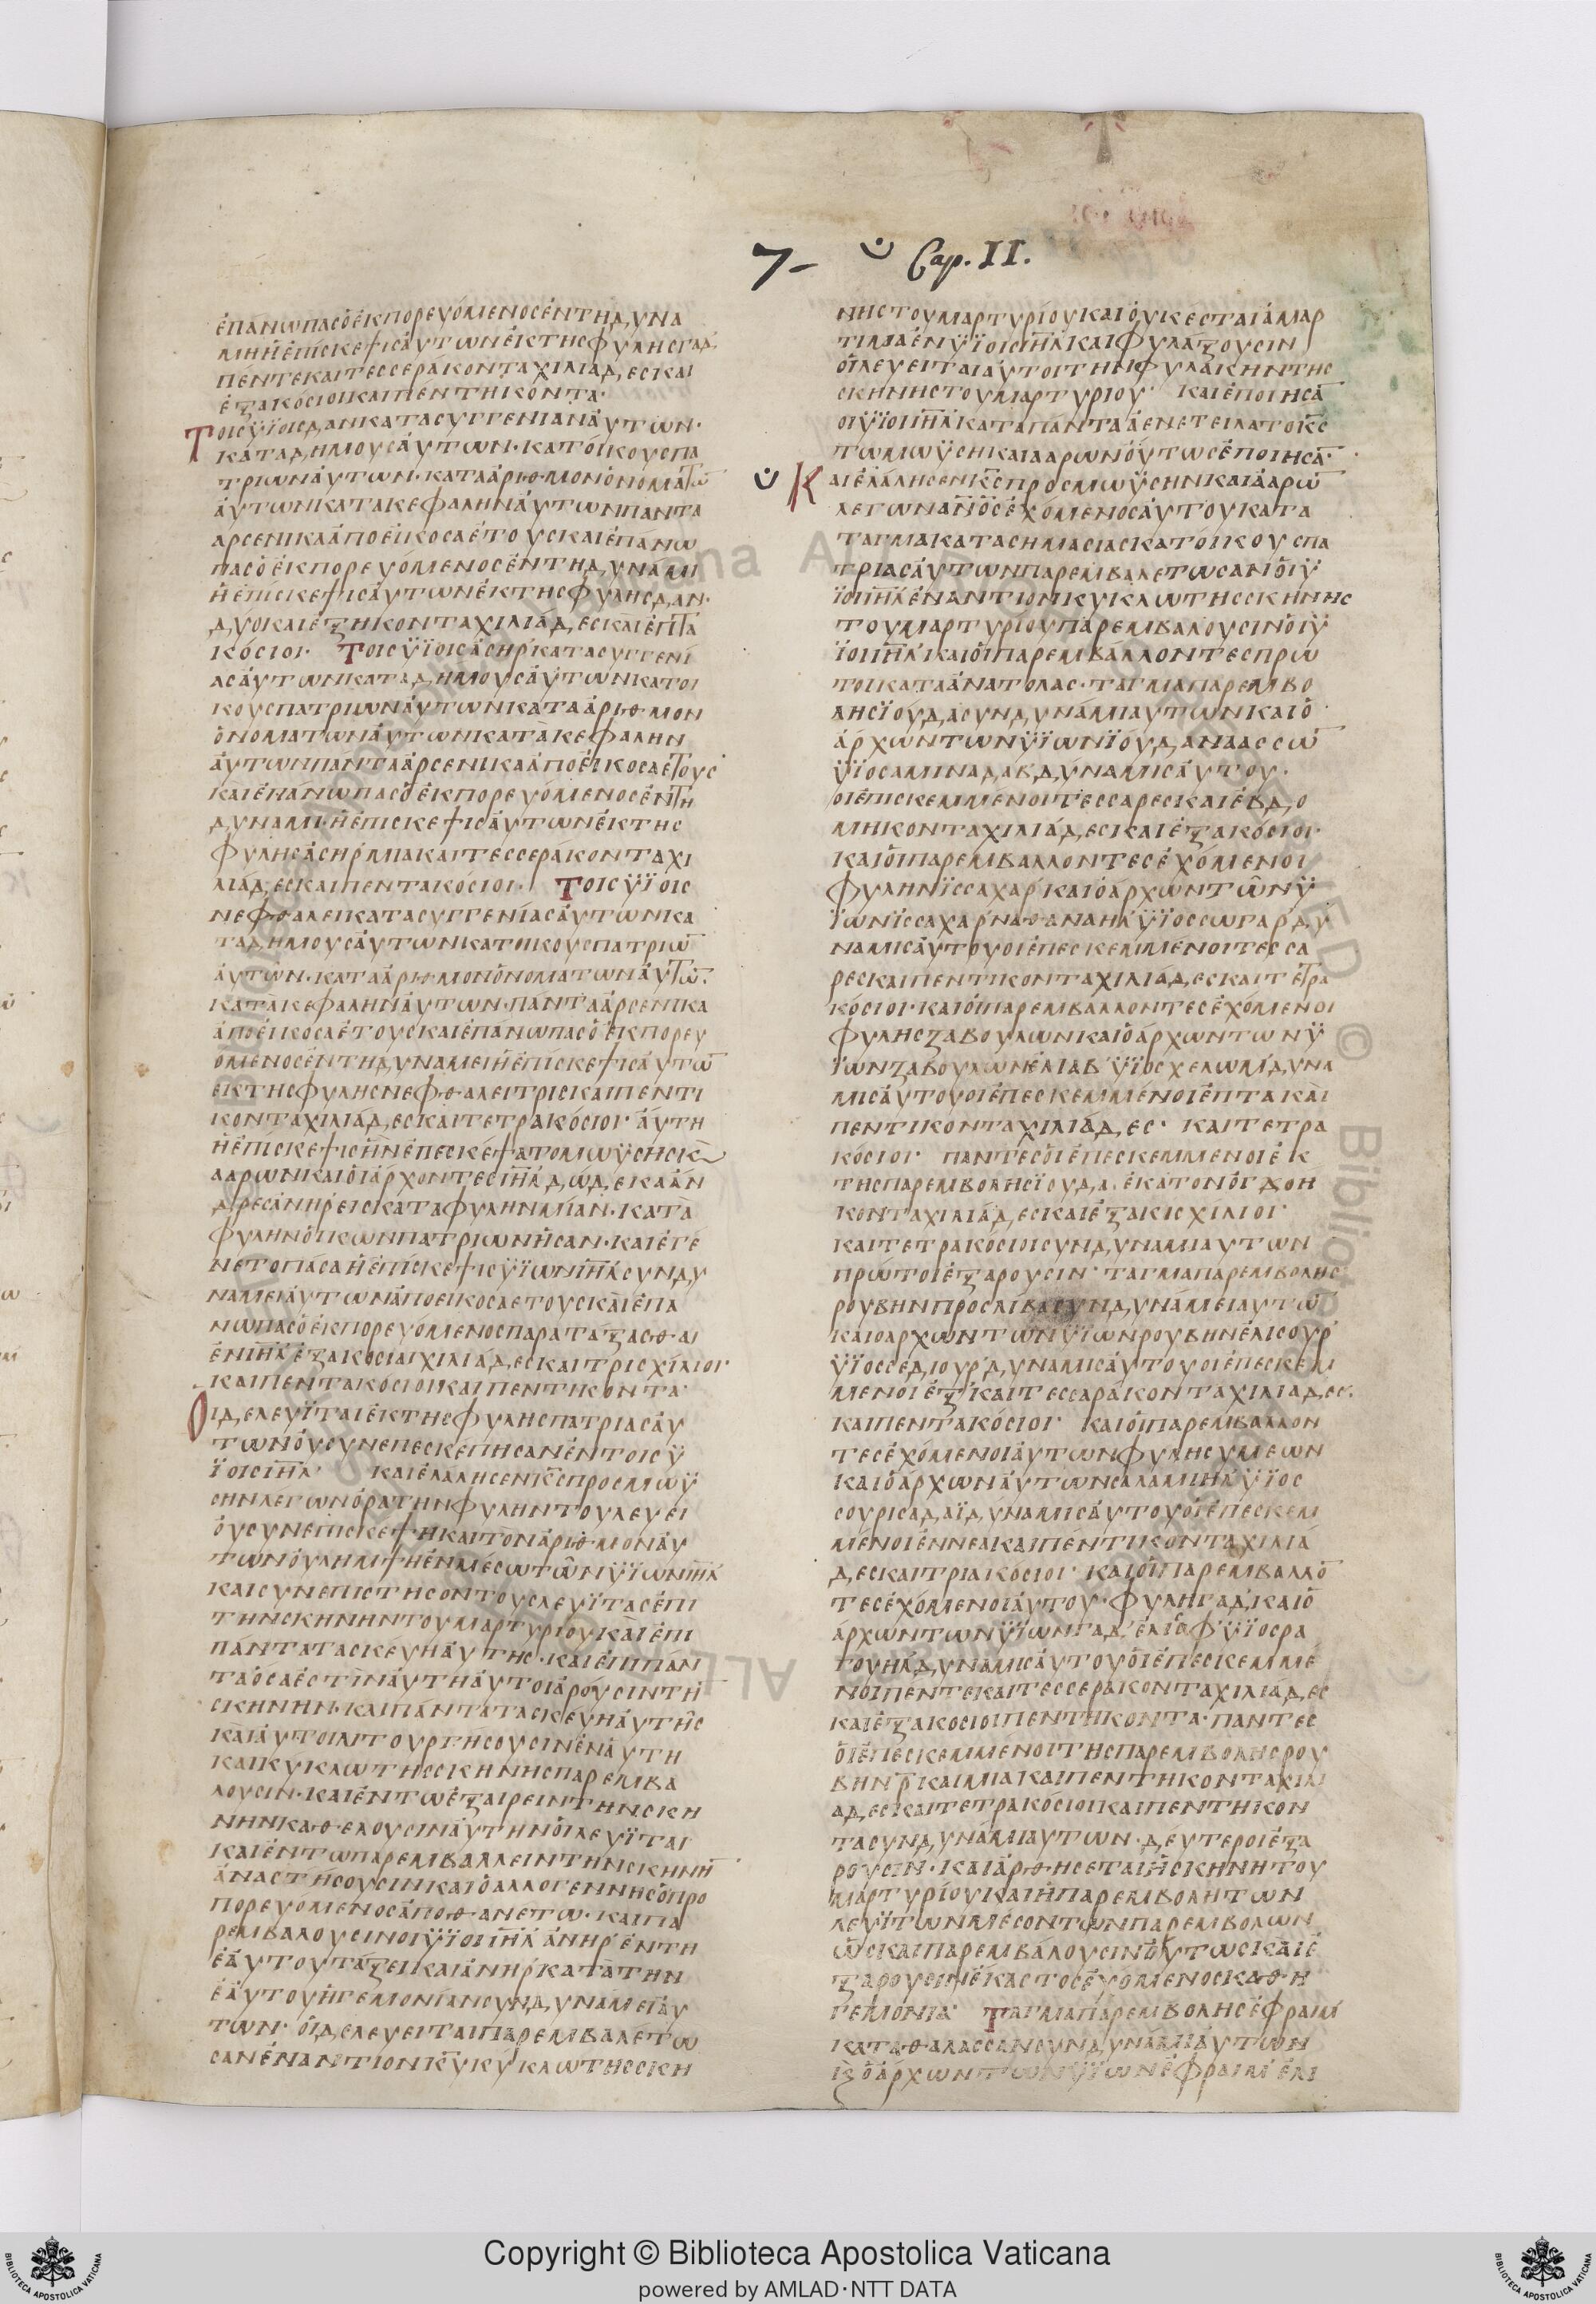 7- Cap. II.
ἐπάνωπασὁἐκπορευόμενοσἐντηδυνα
μηἡἐπίσκεψισἀυτωνἐκτησφυλησγαδ
πέντεκαιτεσσεράκονταχιλιάδεσκαι
ἑξακόσιοικαιπεντήκοντα·
Τοισϋϊοισδανκατασυγγενιανἀυτων·
καταδημουσἀυτων·κατὀικουσπα
τριωνἀυτων·κατἀαριθμονὀνοματω̅
ἀυτωνκατακεφαληνἀυτωνπαντα
αρσενικαἀποἐικοσαἐτουσκαιἐπάνω
πασὁἐκπορευόμενοσἐντηδυνάμι
ἡἐπίσκεψισἀυτωνἐκτησφυλησδαν·
δυοκαιἑξηκονταχιλιάδεσκαιἑπτα
κόσιοι· Τοισϋϊοισἀσηρκατασυγγενί
ασἀυτωνκαταδημουσἀυτωνκατοι
κουσπατριωνἀυτωνκατααριθμον
ὀνοματωνἀυτωνκατακεφαλην
ἀυτωνπανταἀρσενικαἀποἐικοσαετουσ
καιἐπάνωπασὁἐκπορευόμενοσἐντη
δυναμι·ἡἐπίσκεψισἀυτωνἐκτησ
φυλησἀσηρμιακαιτεσσεράκονταχι
λιάδεσκαιπεντακόσιοι· Τοισϋϊοισ
νεφθαλεικατασυγγενίασἀυτωνκα
ταδημουσἀυτωνκατοικουσπατριω̅
ἀυτων·κατααριθμονὀνοματωνἀυτω̅·
κατακεφαληνἀυτων·πανταἀρσενικα
ἀποἐικοσαἐτουσκαιἐπανωπασὁἐκπορευ
όμενοσἐντηδυναμειἡἐπίσκεψισἀυτω̅
ἐκτησφυλησνεφθαλειτρισκαιπεντι
κονταχιλιάδεσκαιτετρακόσιοι· ἁύτη
ἡἐπίσκεψισἡνἐπεσκέψατομωϋσησκ̀
ααρωνκαιὁιἀρχοντεσι̅η̅λ̅δώδεκαἀν
δρεσἀνηρεισκαταφυληνμίαν·κατα
φυληνὀικωνπατριωνἠσαν·καιἐγέ
νετοπάσαἡἐπίσκεψισϋϊωνι̅η̅λ̅συνδυ
ναμειἀυτωνἀποεικοσαετουσκαιἐπα
νωπασὁἐκπορευόμενοσπαραταξασθαι
ἐνι̅η̅λ̅ἑξακοσιαιχιλιάδεσκαιτρισχίλιοι·
καιπεντακόσιοικαιπεντηκοντα·
Οιδελευϊταιἐκτησφυλησπατριασἀυ
τωνὀυσυνεπεσκέπησανἐντοισϋ
ϊοισι̅η̅λ̅· καιἐλαλησενκ̅σ̅προσμωϋ
σηνλεγωνὁρατηνφυληντουλευει
ὀυσυνεπισκεψηκαιτοναριθμονἀυ
τωνὀυλημψηἐνμέσωτωνϋϊωνι̅η̅λ̅
καισυνεπιστησοντουσλευϊτασἐπι
τηνσκηνηντουμαρτυριουκαιἐπι
πάντατασκευηἀυτησ·καιἐπιπάν
ταὁσαἐστὶνἀυτηἀυτοιἀρουσιντη̅
σκηνην·καιπάντατασκευηἀυτησ
καιἀυτοιλιτουργησουσινἐνἀυτη
καικύκλωτησσκηνησπαρεμβα
λουσιν·καιἐντωἐξαιρειντηνσκη
νηνκαθελουσινἀυτηνὁιλευϊται
καιἐντωπαρεμβαλλειντηνσκηνη̅
ἀναστήσουσινκαιὁαλλογεννησὁπρο
πορευόμενοσἀποθανετω·καιπα
ρεμβαλουσινοιϋϊοιι̅η̅λ̅ἀνηρἐντη
ἑαυτουτάξεικαιἀνηρκατατην
ἑαυτουἡγεμονίανσυνδυναμειἀυ
των· ὁιδελευειταιπαρεμβαλέτω
σανἐναντιονκ̅υ̅κύκλωτησσκη
νηστουμαρτυρίουκαιὀυκέσταιἁμαρ
τιμαἐνϋϊοισι̅η̅λ̅καιφυλαξουσιν
ὁιλευειταιἀυτοιτηνφυλακηντησ
σκηνηστουμαρτυριου· καιἐποιησα̅
οιϋϊοιι̅η̅λ̅καταπάνταἁἐνετειλατοκ̅σ̅
τωμωϋσηκαιααρωνὁυτωσἐποιησα̅·
Καιἐλάλησενκ̅σ̅προσμωϋσηνκαιἀαρω̅
λεγωνα̅ν̅ο̅σ̅ἐχόμενοσἀυτουκατα
ταγμακατασημασιασκατοικουσπα
τριασἀυτωνπαρεμβαλετωσανὁιϋ
ϊοιι̅η̅λ̅ἐναντιονκ̅υ̅κυκλωτησσκηνησ
τουμαρτυρίουπαρεμβαλουσινὁιϋ
ϊοιι̅η̅λ̅·καιὁιπαρεμβάλλοντεσπρω
τοικατἀανατολασ·ταγμαπαρεμβο
λησϊούδασυνδυνάμιαυτωνκαιὁ
ἀρχωντωνϋϊωνϊόυδανἀασσω̅
ϋϊοσαμιναδαβδύναμισἀυτου·
οιἐπισκεμμένοιτέσσαρεσκαιἑβδο
μηκονταχιλιάδεσκαιἑξακόσιοι·
καιὁιπαρεμβαλλοντεσἐχόμενοι
φυληνϊσσαχάρκαιὁάρχωντωνϋ
ϊωνϊσσαχάρναθαναηλϋϊοσσωγαρ·δυ
ναμισἀυτουοιἐπεσκεμμενοιτεσσα
ρεσκαιπεντικονταχιλιάδεσκαιτετρα
κόσιοι·καιὁιπαρεμβαλλοντεσἐχόμενοι
φυλησζαβουλωνκαιὁάρχωντωνϋ
ϊωνζαβουλωνἐλιαβϋϊοσχελωμ·δυνα
μισἀυτουοιἐπεσκεμμένοιἑπτακαι
πεντικονταχιλιάδεσ· καιτετρα
κόσιοι· παντεσὁιἐπεσκεμμενοιἐκ
τησπαρεμβολησϊουδα·ἑκατονὀγδοη
κονταχιλιάδεσκαιἑξακισχιλιοι·
καιτετρακόσιοισυνδυναμιαυτων
πρωτοιἐξαρουσιν·ταγμαπαρεμβολησ
ρουβηνπροσλίβασυνδυνάμειαυτω̅
καιοαρχωντωνϋϊωνρουβηνἐλισουρ
ϋϊοσσεδιουρ·δυναμισἀυτουοιἐπεσκεμ
μενοιἑξκαιτεσσαράκονταχιλιαδεσ·
καιπεντακόσιοι· καιὁιπαρεμβαλλον
τεσἐχόμενοιἀυτωνφυλησυμεων
καιὁάρχωνἀυτωνσαλαμιηλϋϊοσ
σουρισαδαϊδύναμισἀυτουὁιἐπεσκεμ
μένοιἐννεακαιπέντικονταχιλιά
δεσκαιτριακόσιοι· καιὁιπαρεμβαλλο̅
τεσἐχόμενοιἀυτου·φυληγαδκαιὁ
άρχωντωνϋϊωνγαδ·ἐλισαφϋϊοσρα
γουηλ·δυναμισἀυτουὁιἐπεσκεμμέ
νοιπέντεκαιτεσσεράκονταχιλιάδεσ
καιἑξακοσιοιπεντήκοντα·παντεσ
ὁιἐπεσκεμμενοιτησπαρεμβολησρου
βηνρ̅καιμιακαιπεντηκονταχιλι
αδεσκαιτετρακόσιοικαιπεντηκον
τασυνδυνάμιαυτων·δέυτεροιἐξα
ρουσιν·καιἀρθησεταιἡσκηνητου
μαρτυρίουκαιἡπαρεμβολητων
λευϊτωνμέσοντωνπαρεμβολων
ὡσκαιπαρεμβάλουσινὁυτωσκαιἐ
ξαρουσινἑκαστοσἐχόμενοσκαθη
γεμονια· Ταγμαπαρεμβολησἐφραιμ
καταθαλασσανσυνδυνάμιἀυτων
κ̀ὁάρχωντωνϋϊωνἐφραιμἐλι
Copyright © Biblioteca Apostolica Vaticana
powered by AMLAD·NTT DATA